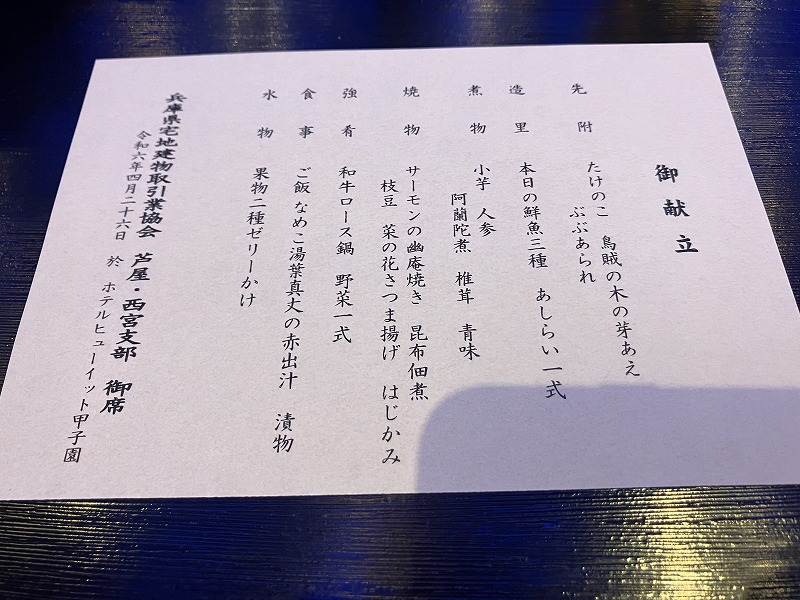 御献立
先附　たけのこ　烏賊の木の芽あえ
ぶぶあられ
造里　本日の鮮魚三種　あしらい一式
煮物　小芋　人参
阿蘭陀煮　椎茸　青味
焼物　サーモンの幽庵焼き　昆布佃煮
枝豆　菜の花さつま揚げ　はじかみ
強肴　和牛ロース鍋　野菜一式
食事　ご飯 なめこ湯葉真丈の赤出汁　漬物
水物　果物二種ゼリーかけ
兵庫県宅地建物取引業協会　芦屋・西宮支部　御席
令和六年四月二十六日　於　ホテルヒューイット甲子園